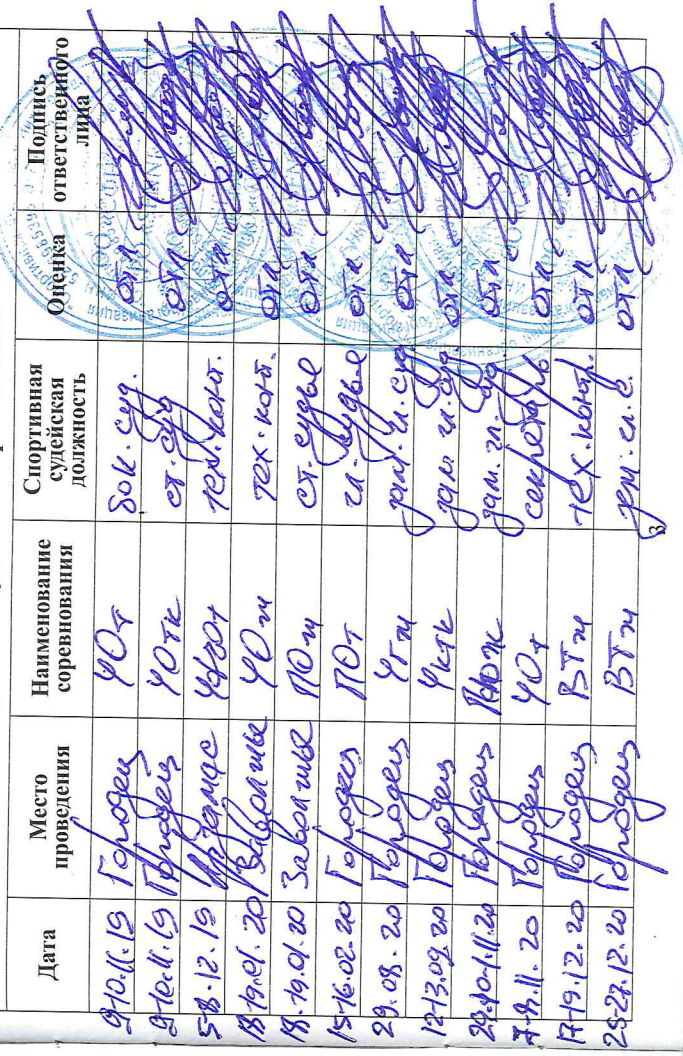 Дата Место проведения Наименование соревнования Спортивная судейская должность Оценка Подпись ответственного лица
9-10.11.19 Городец ЧОт бок. суд. отл
9-10.11.19 Городец ЧОтк ст. суд отл
5-8.12.19 Арзамас тех. конт. отл
18-19.01.20 Заволжье ЧОж тех. конт. отл
18-19.01.20 Заволжье ПОж ст. судья отл
15-16.02.20 Городец ПОт гл. судья отл
29.08.20 Городец ЧГж зам. гл. суд отл
12-13.09.20 Городец зам. гл. суд отл
29.10-1.11.20 Городец зам. гл. суд. отл
7-8.11.20 Городец ЧОт секретарь отл
17-19.12.20 Городец ВТж тех. контр. отл
25-27.12.20 Городец ВТж зам. гл. с. отл
3